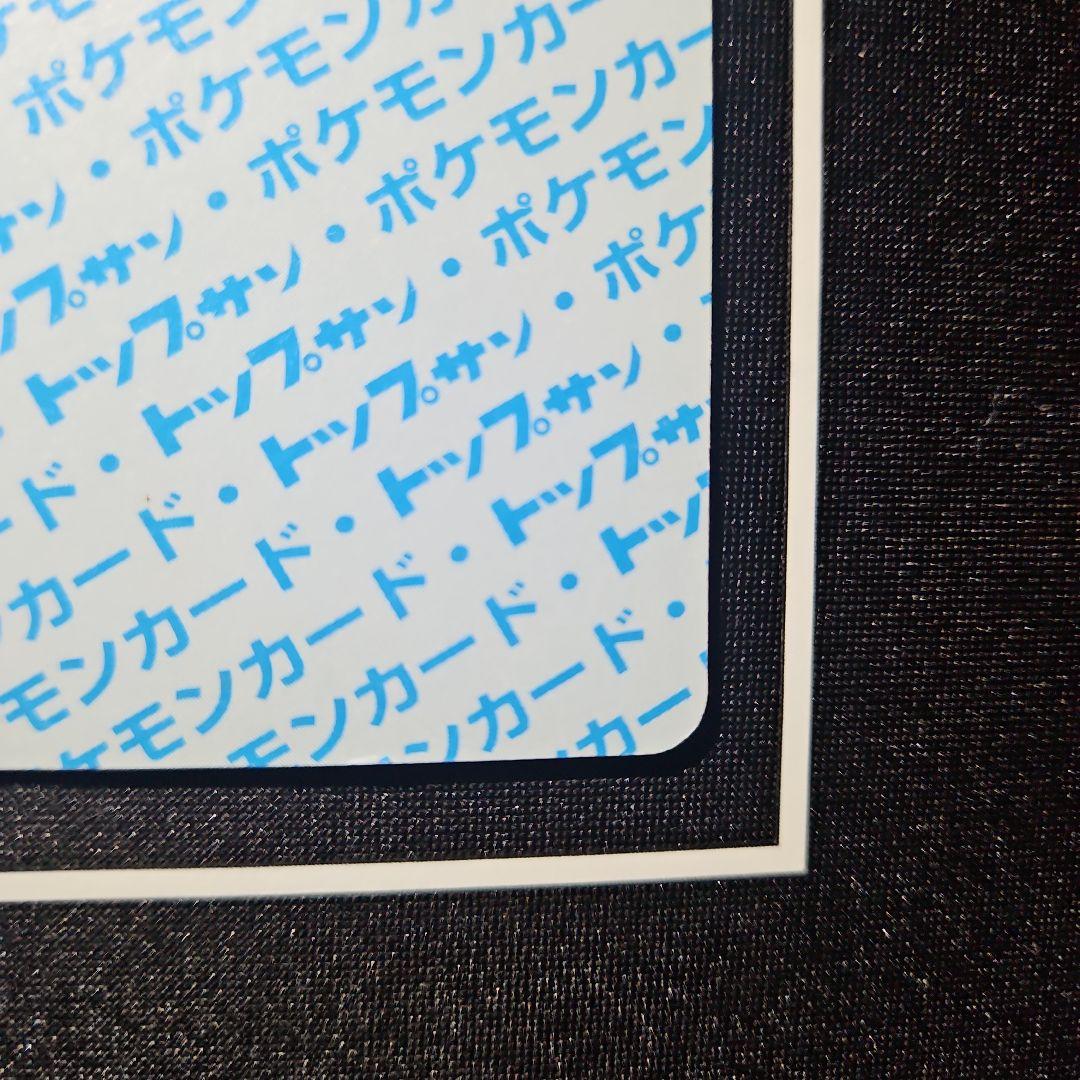 ポケモン
サン・ポケモンカ
ップサン・ポケモンカー
トップサン・ポケモンカー
ード・トップサン・ポケモン
カード・トップサン・ポケ
モンカード・トップサン・
ケモンカード・トップサ
モンカード・トッ
ンカード・
カー